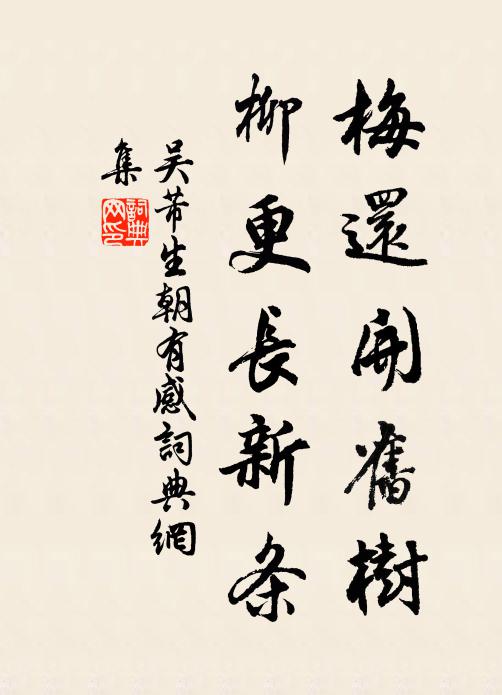 梅還開舊樹
柳更長新条
吴芾生朝有感詞典網
集
詞典
网印